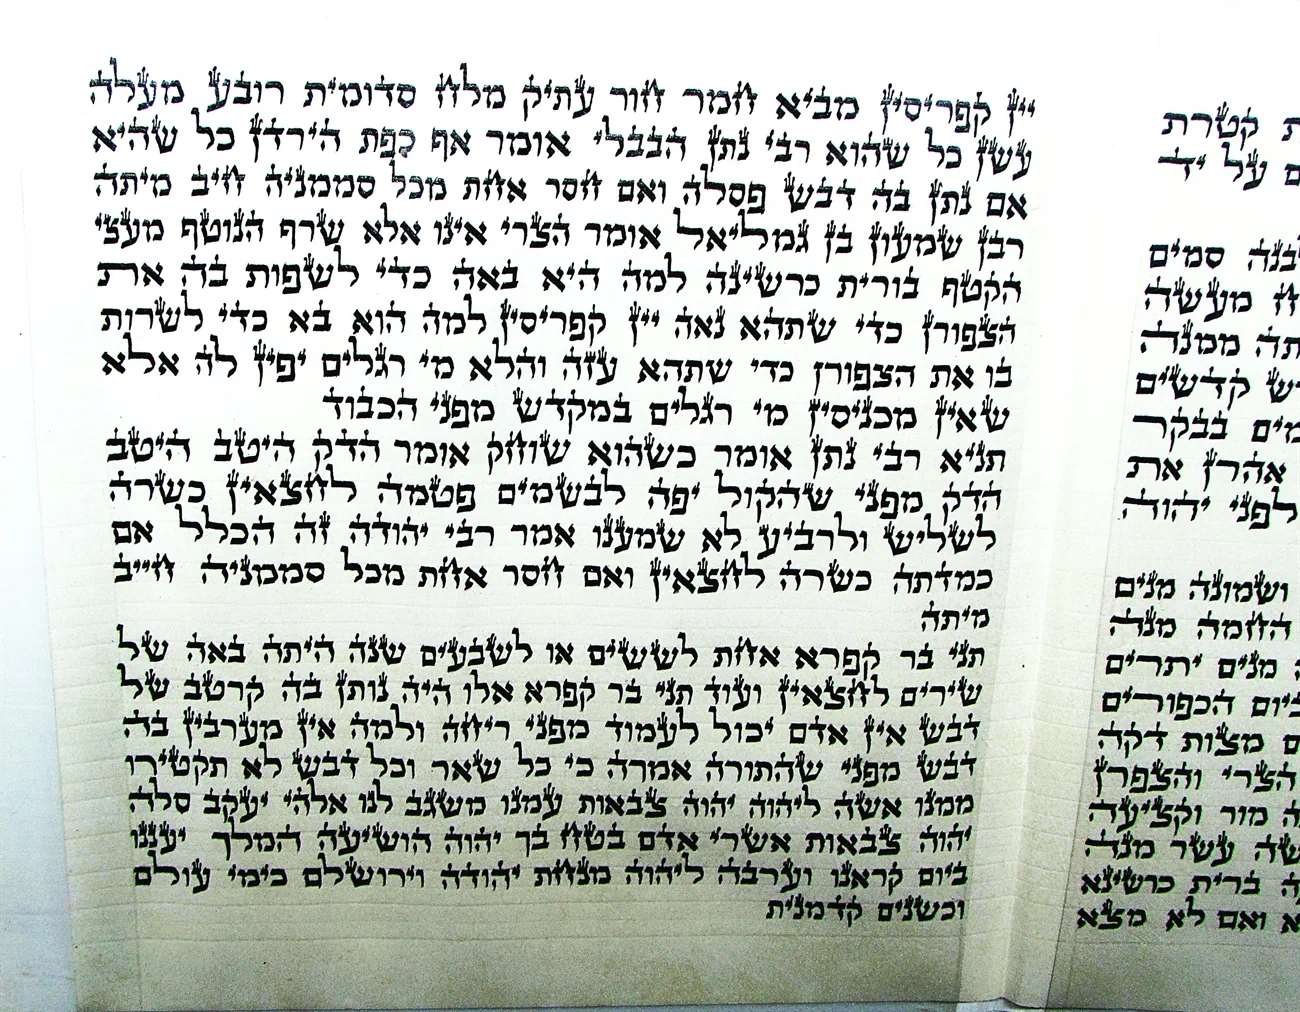 קטרת
על יד
סמים
מעשה
ממנה
קדשים
בבקר
אהרן את
לפני יהוה
ושמונה מנים
החמה מנה
מנים יתרים
ביום הכפורים
מצות דקה
הצרי והצפרן
מור וקציעה
עשר מנה
ברית כרשינא
ואם לא מצא
יין קפריסין מביא חמר חור עתיק מלח סדומית רובע מעלה
עשן כל שהוא רבי נתן הבבלי אומר אף כפת הירדן כל שהיא
אם נתן בה דבש פסלה ואם חסר אחת מכל סממניה חיב מיתה
רבן שמעון בן גמליאל אומר הצרי אינו אלא שרף הנוטף מעצי
הקטף בורית כרשינה למה היא באה כדי לשפות בה את
הצפורן כדי שתהא נאה יין קפריסין למה הוא בא כדי לשרות
בו את הצפורן כדי שתהא עזה והלא מי רגלים יפין לה אלא
שאין מכניסין מי רגלים במקדש מפני הכבוד
תניא רבי נתן אומר כשהוא שוחק אומר הדק היטב היטב
הדק מפני שהקול יפה לבשמים פטמה לחצאין כשרה
לשליש ולרביע לא שמענו אמר רבי יהודה זה הכלל אם
כמדתה כשרה לחצאין ואם חסר אחת מכל סממניה חייב
מיתה
תני בר קפרא אחת לששים או לשבעים שנה היתה באה של
שירים לחצאין ועוד תני בר קפרא אלו היה נותן בה קרטב של
דבש אין אדם יכול לעמוד מפני ריחה ולמה אין מערבין בה
דבש מפני שהתורה אמרה כי כל שאר וכל דבש לא תקטירו
ממנו אשה ליהוה יהוה צבאות עמנו משגב לנו אלהי יעקב סלה
יהוה צבאות אשרי אדם בטח בך יהוה הושיעה המלך יעננו
ביום קראנו וערבה ליהוה מנחת יהודה וירושלם כימי עולם
וכשנים קדמנית